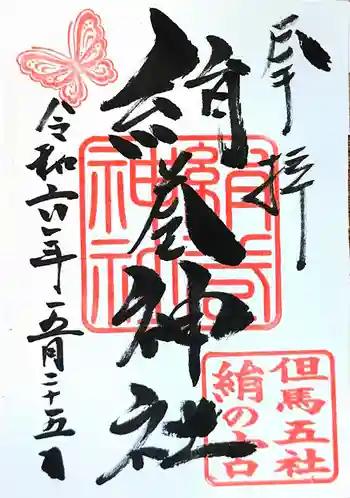 奉拝
絹巻神社
令和六年五月二十五日
但馬五社
絹の宮